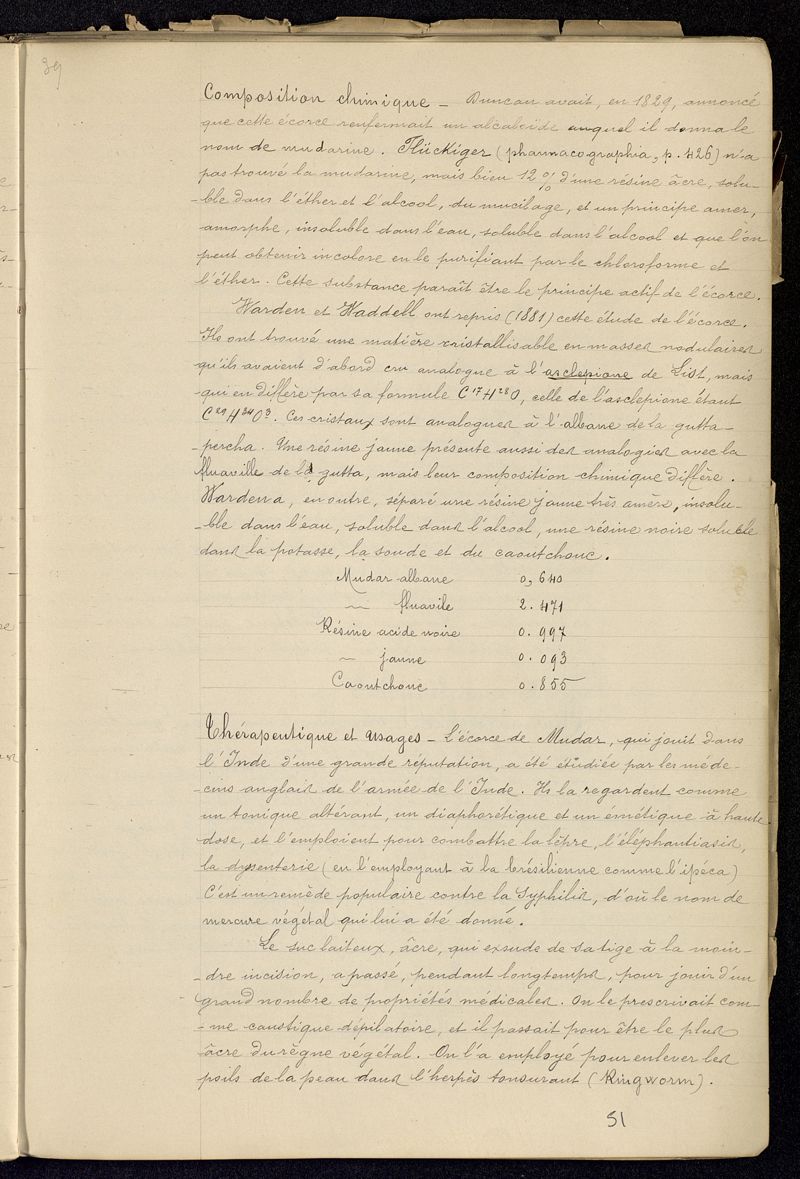 39
Composition chimique – Duncan avait, en 1829, annoncé
que cette écorce renfermait un alcaloïde auquel il donna le
nom de mudarine. Flückiger (pharmacographia, p. 426) n'a
pas trouvé la mudarine, mais bien 12 % d'une résine âcre, solu-
-ble dans l'éther et l'alcool, du mucilage, et un principe amer,
amorphe, insoluble dans l'eau, soluble dans l'alcool et que l'on
peut obtenir incolore en le purifiant par le chloroforme et
l'éther. Cette substance paraît être le principe actif de l'écorce.
Warden et Waddell ont repris (1881) cette étude de l'écorce.
Ils ont trouvé une matière cristallisable en masses nodulaires
qu'ils avaient d'abord cru analogue à l'asclepione de List, mais
qui en diffère par sa formule C¹⁷H²⁸O, celle de l'asclepione étant
C²⁹H³⁴O³. Ces cristaux sont analogues à l'albane de la gutta-
-percha. Une résine jaune présente aussi des analogies avec la
fluaville de la gutta, mais leur composition chimique diffère.
Warden a, en outre, séparé une résine jaune très amère, insolu-
-ble dans l'eau, soluble dans l'alcool, une résine noire soluble
dans la potasse, la soude et du caoutchouc.
Mudar albane 0,640
— fluavile 2.471
Résine acide noire 0.997
— jaune 0.093
Caoutchouc 0.855
Thérapeutique et usages – L'écorce de Mudar, qui jouit dans
l'Inde d'une grande réputation, a été étudiée par les méde-
-cins anglais de l'armée de l'Inde. Ils la regardent comme
un tonique altérant, un diaphorétique et un émétique à haute
dose, et l'emploient pour combattre la lèpre, l'éléphantiasis,
la dysenterie (en l'employant à la brésilienne comme l'ipéca)
C'est un remède populaire contre la Syphilis, d'où le nom de
mercure végétal qui lui a été donné.
Le suc laiteux, âcre, qui exsude de sa tige à la moin-
-dre incision, a passé, pendant longtemps, pour jouir d'un
grand nombre de propriétés médicales. On le prescrivait com-
-me caustique dépilatoire, et il passait pour être le plus
âcre du règne végétal. On l'a employé pour enlever les
poils de la peau dans l'herpès tonsurant (Ringworm).
51